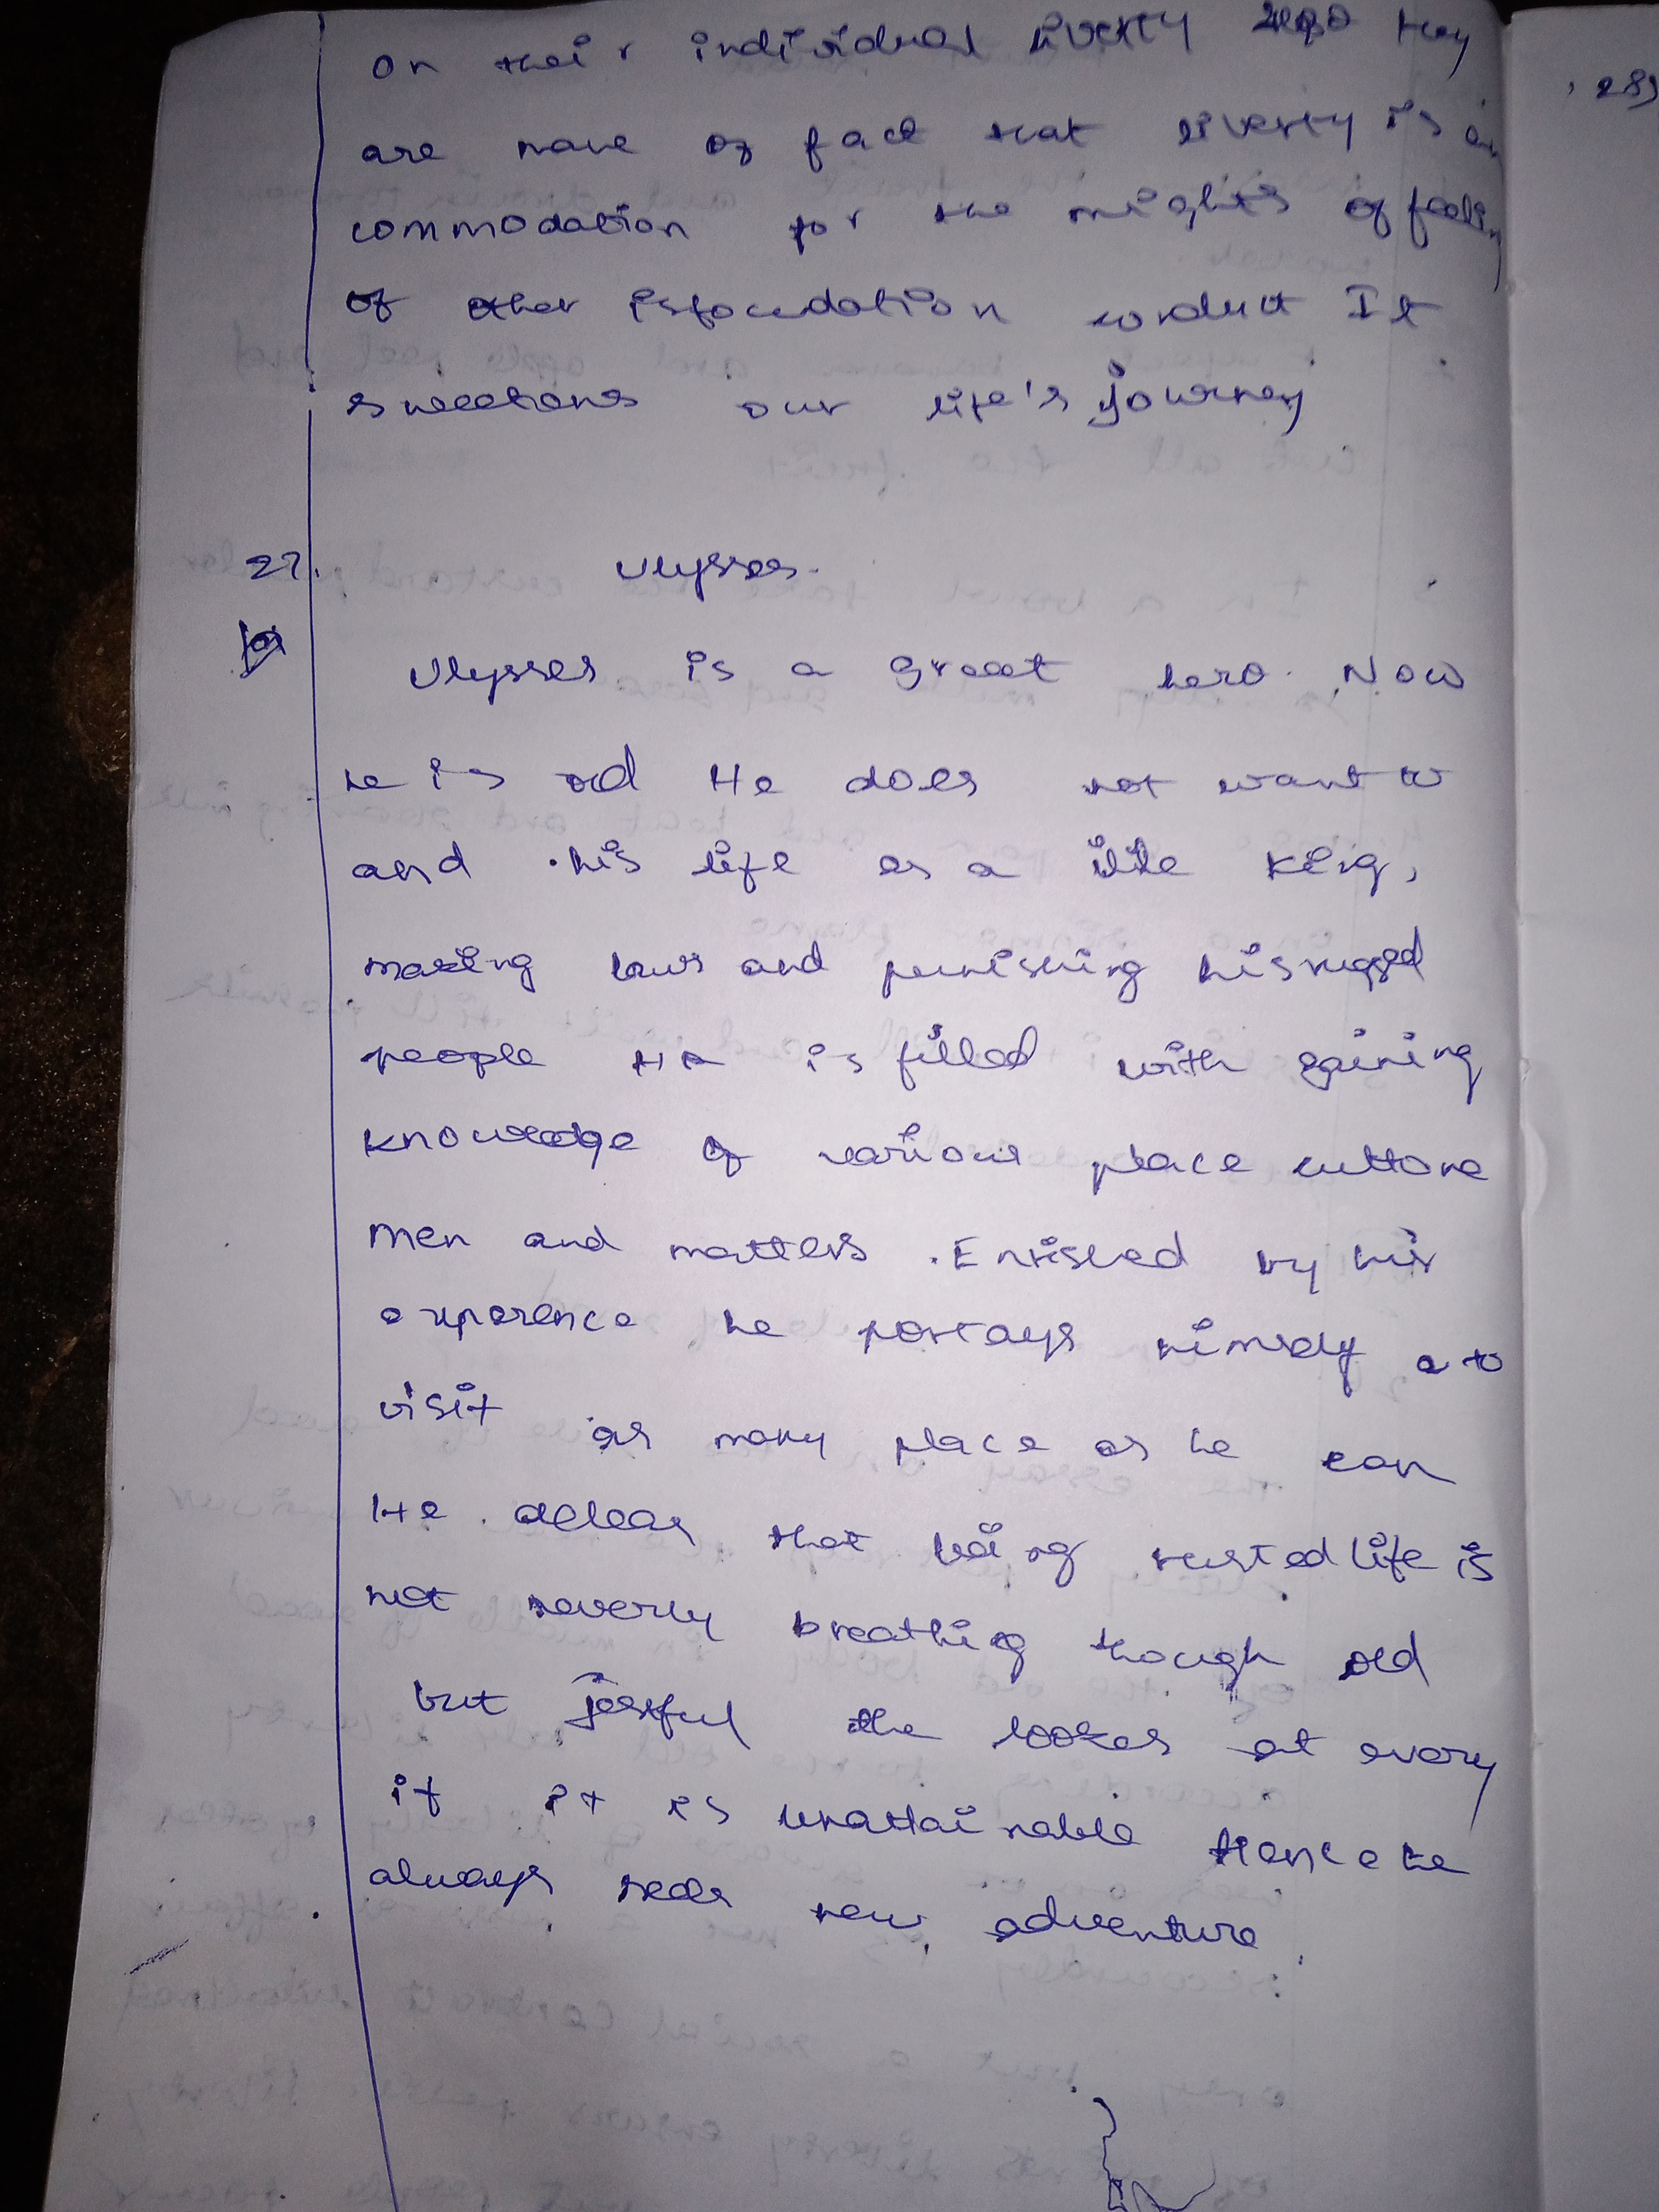 on their individual liverty they
are mave of fact that liverty is an
commodation for the mights of feeling
of other isfoundation conduct It
our life's journey
27. Ulysses.
Ulysses is a great hero. Now
he is old He does not want to
and his life as a idle king,
making laws and punishing his rugged
people He is filled with gaining
knowledge of various place culture
men and matters . Enrished by his
experence he portays himself to
visit as many place as he can
He declear that being rusted life is
not breathing though old
but the lookes at every
if it is unattainable Hence he
always seeks new adventure.